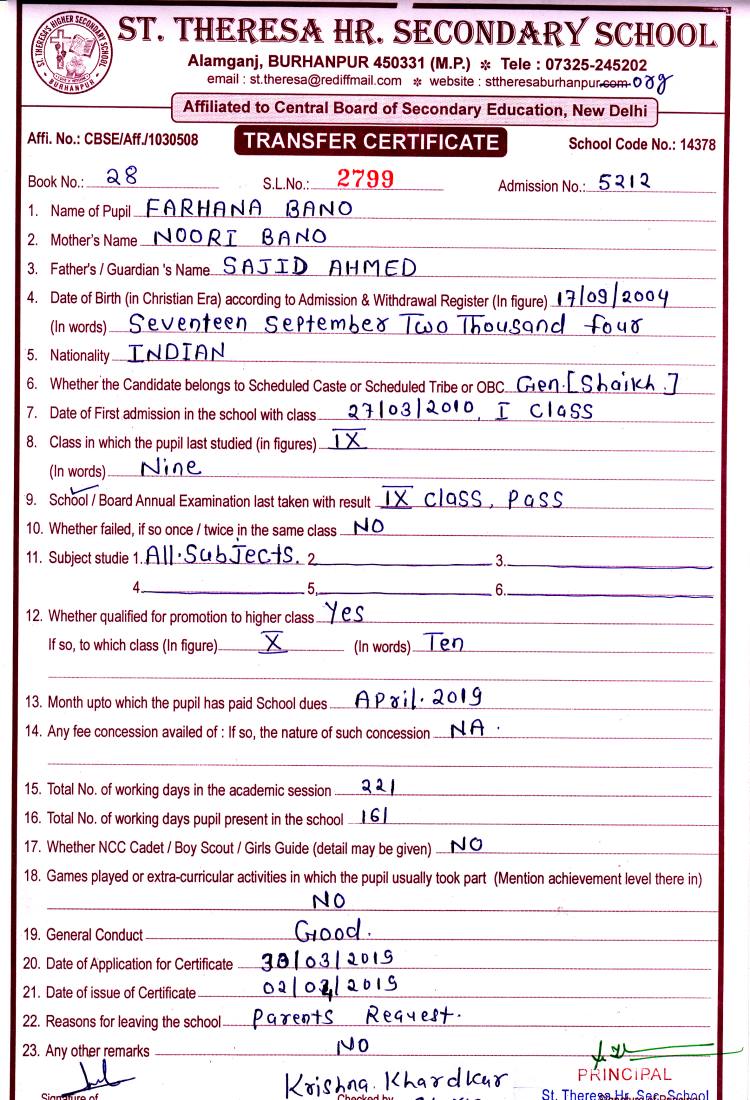 ST. THERESA'S HIGHER SECONDARY SCHOOL
BURHANPUR
ST. THERESA HR. SECONDARY SCHOOL
Alamganj, BURHANPUR 450331 (M.P.) ✻ Tele : 07325-245202
email : st.theresa@rediffmail.com ✻ website : sttheresaburhanpur.com org
Affiliated to Central Board of Secondary Education, New Delhi
Affi. No.: CBSE/Aff./1030508 TRANSFER CERTIFICATE School Code No.: 14378
Book No.: 28 S.L.No.: 2799 Admission No.: 5212
1. Name of Pupil FARHANA BANO
2. Mother's Name NOORI BANO
3. Father's / Guardian 's Name SAJID AHMED
4. Date of Birth (in Christian Era) according to Admission & Withdrawal Register (In figure) 17/09/2004
(In words) Seventeen September Two Thousand four
5. Nationality INDIAN
6. Whether the Candidate belongs to Scheduled Caste or Scheduled Tribe or OBC Gen.[Shaikh.]
7. Date of First admission in the school with class 27/03/2010, I Class
8. Class in which the pupil last studied (in figures) IX
(In words) Nine
9. School / Board Annual Examination last taken with result IX Class, Pass
10. Whether failed, if so once / twice in the same class NO
11. Subject studie 1. All.Subjects. 2. 3.
4. 5, 6.
12. Whether qualified for promotion to higher class Yes
If so, to which class (In figure) X (In words) Ten
13. Month upto which the pupil has paid School dues April. 2019
14. Any fee concession availed of : If so, the nature of such concession NA .
15. Total No. of working days in the academic session 221
16. Total No. of working days pupil present in the school 161
17. Whether NCC Cadet / Boy Scout / Girls Guide (detail may be given) NO
18. Games played or extra-curricular activities in which the pupil usually took part (Mention achievement level there in)
NO
19. General Conduct Good.
20. Date of Application for Certificate 30/03/2019
21. Date of issue of Certificate 02/04/2019
22. Reasons for leaving the school Parents Request.
23. Any other remarks NO
Krishna. Khardkar PRINCIPAL
Signature of Checked by St. Theresa Hr. Sec. School